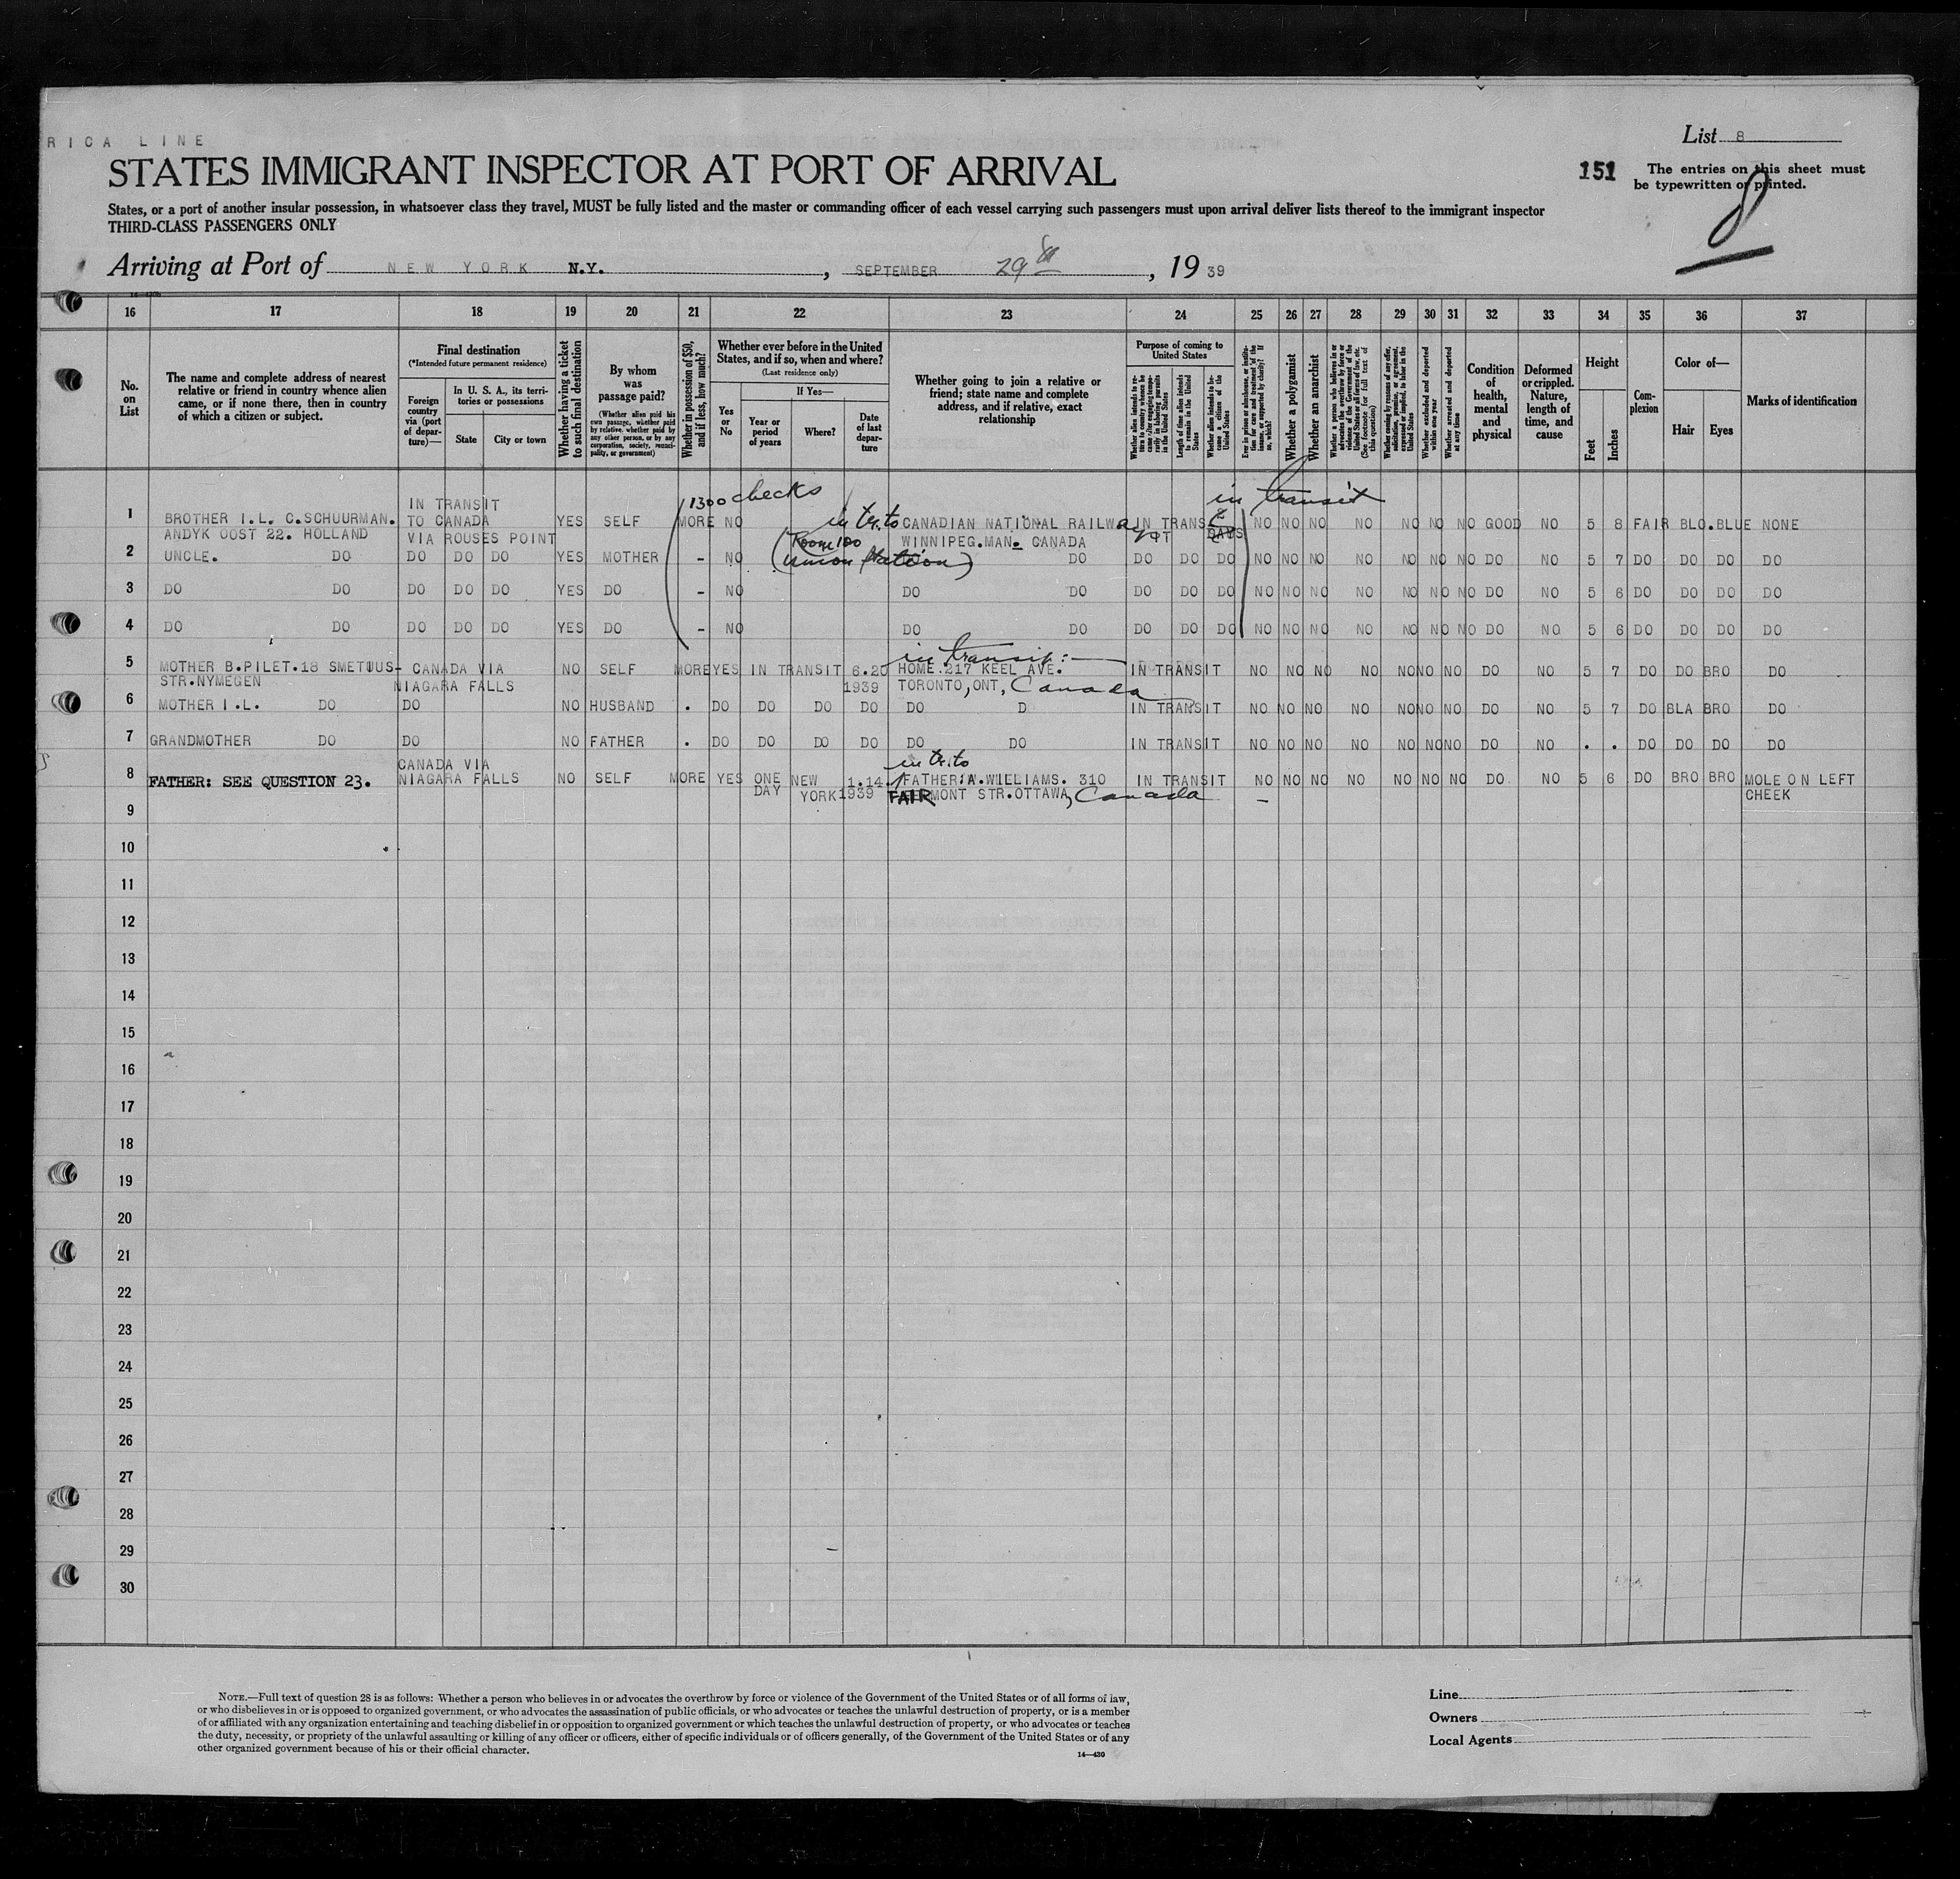 RICA LINE
List 8
STATES IMMIGRANT INSPECTOR AT PORT OF ARRIVAL
151
The entries on this sheet must
be typewritten or printed.
8
States, or a port of another insular possession, in whatsoever class they travel, MUST be fully listed and the master or commanding officer of each vessel carrying such passengers must upon arrival deliver lists thereof to the immigrant inspector
THIRD-CLASS PASSENGERS ONLY
Arriving at Port of NEW YORK N.Y. , SEPTEMBER 29th , 19 39
16 17 18 19 20 21 22 23 24 25 26 27 28 29 30 31 32 33 34 35 36 37
No. on List
The name and complete address of nearest relative or friend in country whence alien came, or if none there, then in country of which a citizen or subject.
Final destination
(*Intended future permanent residence)
Foreign country via (port of departure)—
In U. S. A., its territories or possessions
State
City or town
Whether having a ticket to such final destination
By whom was passage paid?
(Whether alien paid his own passage, whether paid by relative, whether paid by any other person, or by any corporation, society, municipality, or government)
Whether in possession of $50, and if less, how much?
Whether ever before in the United States, and if so, when and where?
(Last residence only)
Yes or No
If Yes—
Year or period of years
Where?
Date of last departure
Whether going to join a relative or friend; state name and complete address, and if relative, exact relationship
Purpose of coming to United States
Length of time alien intends to remain in the United States
Whether alien intends to become a citizen of the United States
Whether a polygamist
Whether an anarchist
Whether excluded and deported within one year
Whether arrested and deported at any time
Condition of health, mental and physical
Deformed or crippled. Nature, length of time, and cause
Height
Feet
Inches
Complexion
Color of—
Hair
Eyes
Marks of identification
1300 checks
in transit
1 BROTHER I.L. C.SCHUURMAN. IN TRANSIT TO CANADA YES SELF MORE NO in tr. to CANADIAN NATIONAL RAILWay IN TRANSIT DAYS NO NO NO NO NO NO NO GOOD NO 5 8 FAIR BLO. BLUE NONE
ANDYK OOST 22. HOLLAND VIA ROUSES POINT (Room 100 WINNIPEG.MAN. CANADA
2 UNCLE. DO DO DO DO YES MOTHER - NO Union Station) DO DO DO DO NO NO NO NO NO NO NO DO NO 5 7 DO DO DO DO
3 DO DO DO DO DO YES DO - NO DO DO DO DO DO NO NO NO NO NO NO NO DO NO 5 6 DO DO DO DO
4 DO DO DO DO DO YES DO - NO DO DO DO DO DO NO NO NO NO NO NO NO DO NO 5 6 DO DO DO DO
in transit:—
5 MOTHER B.PILET.18 SMETIUS- CANADA VIA NO SELF MORE YES IN TRANSIT 6.20 HOME.217 KEEL AVE. IN TRANSIT NO NO NO NO NO NO NO DO NO 5 7 DO DO BRO DO
STR.NYMEGEN NIAGARA FALLS 1939 TORONTO,ONT, Canada
6 MOTHER I.L. DO DO NO HUSBAND . DO DO DO DO DO D IN TRANSIT NO NO NO NO NO NO NO DO NO 5 7 DO BLA BRO DO
7 GRANDMOTHER DO DO NO FATHER . DO DO DO DO DO DO IN TRANSIT NO NO NO NO NO NO NO DO NO . . DO DO DO DO
CANADA VIA in tr. to
8 FATHER: SEE QUESTION 23. NIAGARA FALLS NO SELF MORE YES ONE DAY NEW YORK 1.14. 1939 FATHER:W.WILLIAMS. 310 IN TRANSIT NO NO NO NO NO NO NO DO NO 5 6 DO BRO BRO MOLE ON LEFT CHEEK
FAIRMONT STR.OTTAWA, Canada —
9
10
11
12
13
14
15
16
17
18
19
20
21
22
23
24
25
26
27
28
29
30
NOTE.—Full text of question 28 is as follows: Whether a person who believes in or advocates the overthrow by force or violence of the Government of the United States or of all forms of law,
or who disbelieves in or is opposed to organized government, or who advocates the assassination of public officials, or who advocates or teaches the unlawful destruction of property, or is a member
of or affiliated with any organization entertaining and teaching disbelief in or opposition to organized government or which teaches the unlawful destruction of property, or who advocates or teaches
the duty, necessity, or propriety of the unlawful assaulting or killing of any officer or officers, either of specific individuals or of officers generally, of the Government of the United States or of any
other organized government because of his or their official character.
14—430
Line
Owners
Local Agents